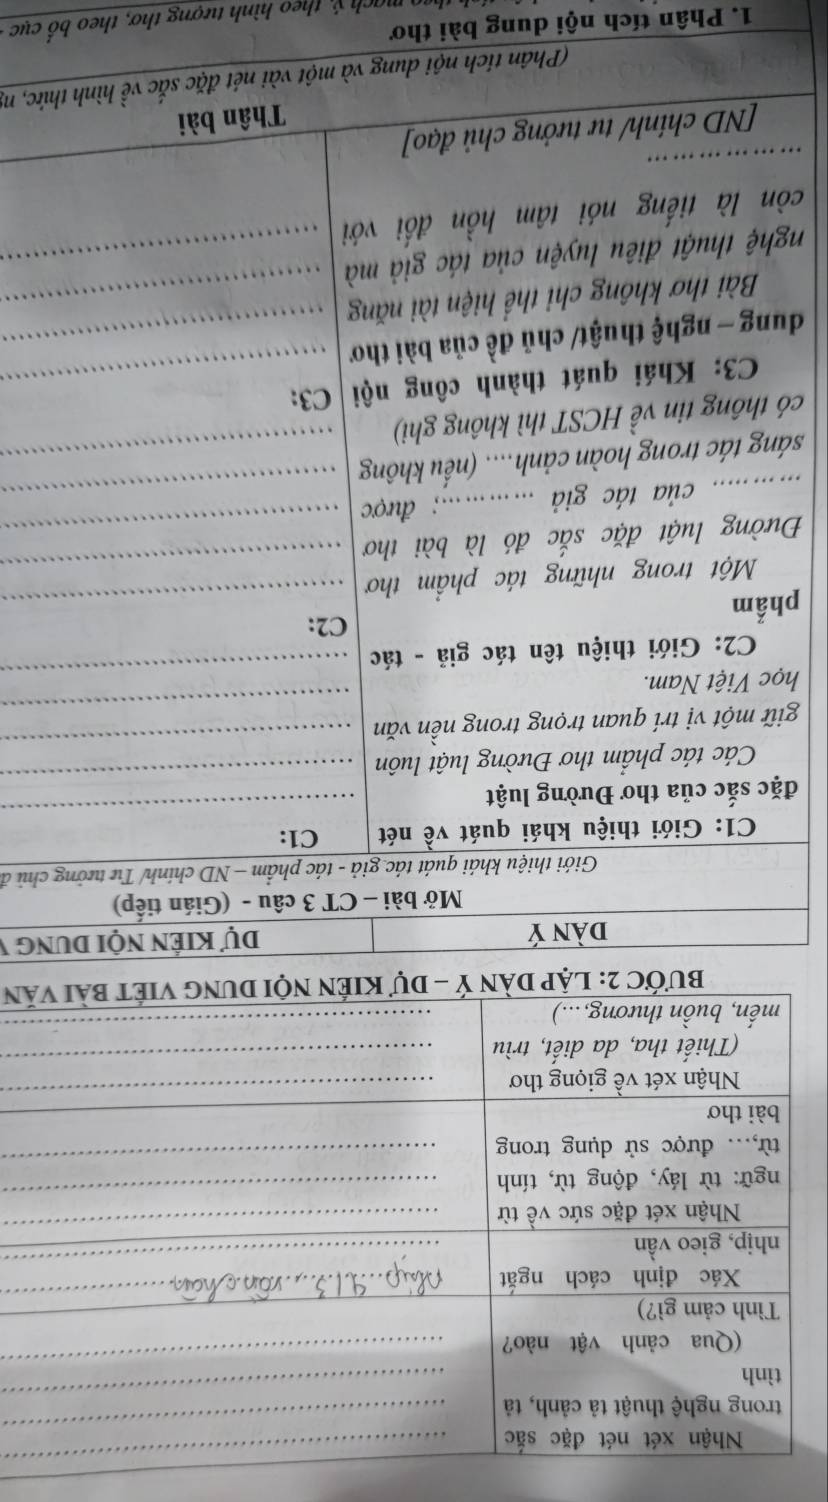 Nhận xét nét đặc sắc
trong nghệ thuật tả cảnh, tả
tình
(Qua cảnh vật nào?
Tình cảm gì?)
Xác định cách ngắt
nhịp, gieo vần
nhịp...4/3...vần chân
Nhận xét đặc sức về từ
ngữ: từ láy, động từ, tính
từ,... được sử dụng trong
bài thơ
Nhận xét về giọng thơ
(Thiết tha, da diết, trìu
mến, buồn thương,...)
BƯỚC 2: LẬP DÀN Ý – DỰ KIẾN NỘI DUNG VIẾT BÀI VĂN
DÀN Ý
DỰ KIẾN NỘI DUNG
Mở bài – CT 3 câu - (Gián tiếp)
Giới thiệu khái quát tác giả - tác phẩm – ND chính/ Tư tưởng chủ đ
C1: Giới thiệu khái quát về nét
đặc sắc của thơ Đường luật
Các tác phẩm thơ Đường luật luôn
giữ một vị trí quan trọng trong nền văn
học Việt Nam.
C1:
C2: Giới thiệu tên tác giả - tác
phẩm
Một trong những tác phẩm thơ
Đường luật đặc sắc đó là bài thơ
......... của tác giả ............; được
sáng tác trong hoàn cảnh.... (nếu không
có thông tin về HCST thì không ghi)
C2:
C3: Khái quát thành công nội
dung – nghệ thuật/ chủ đề của bài thơ
Bài thơ không chỉ thể hiện tài năng
nghệ thuật điêu luyện của tác giả mà
còn là tiếng nói tâm hồn đối với
..................
[ND chính/ tư tưởng chủ đạo]
C3:
Thân bài
(Phân tích nội dung và một vài nét đặc sắc về hình thức, ng
1. Phân tích nội dung bài thơ
mạch ý, theo hình tượng thơ, theo bố cục